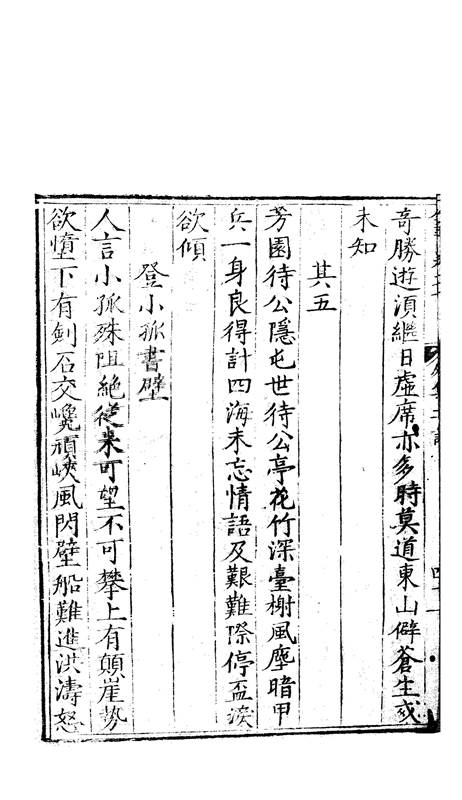 奇勝遊湏繼日虛席亦多時莫道東山僻蒼生或
未知
其五
芳園待公隱屯世待公亭花竹深臺榭風塵暗甲
兵一身良得計四海未忘情語及艱難際停盃淚
欲傾
登小孤書壁
人言小孤殊阻絶從來可望不可攀上有顛崖勢
欲墮下有劍石交巉頑峽風閃壁船難進洪濤怒